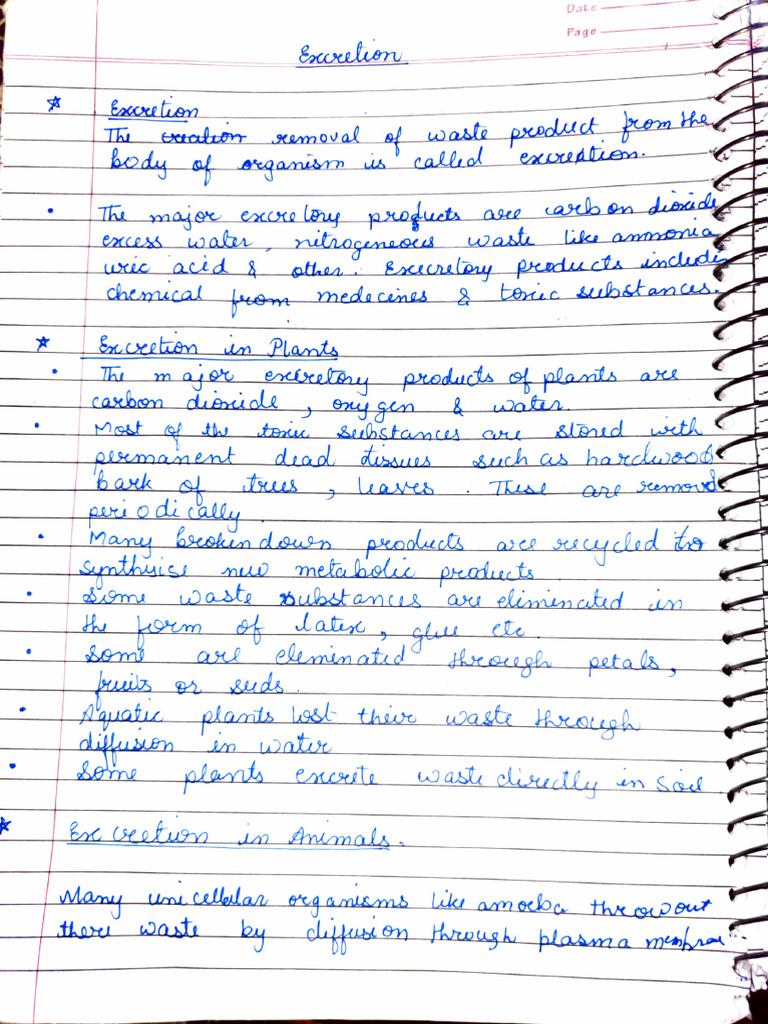 Date
Page
Excretion
Excretion
The creation removal of waste product from the
body of organism is called excreation.
The major excretory products are carbon dioxide
excess water, nitrogeneous waste like ammonia
uric acid & other. Execretory products includin
chemical from medecines & toxic substances.
Excretion in Plants
The major excretory products of plants are
carbon dioxide, oxygen & water.
Most of the toxic substances are stored with
permanent dead tissues such as hardwood
bark of trees, leaves. These are removed
periodically
Many broken down products are recycled to
synthisise new metabolic products
Some waste substances are eliminated in
the form of latex, glue etc.
Some are eleminated through petals,
fruits or seeds.
Aquatic plants lost their waste through
diffusion in water
Some plants excrete waste directly in soil
Excretion in Animals.
Many unicellular organisms like amoeba throwout
there waste by diffusion through plasma membrane